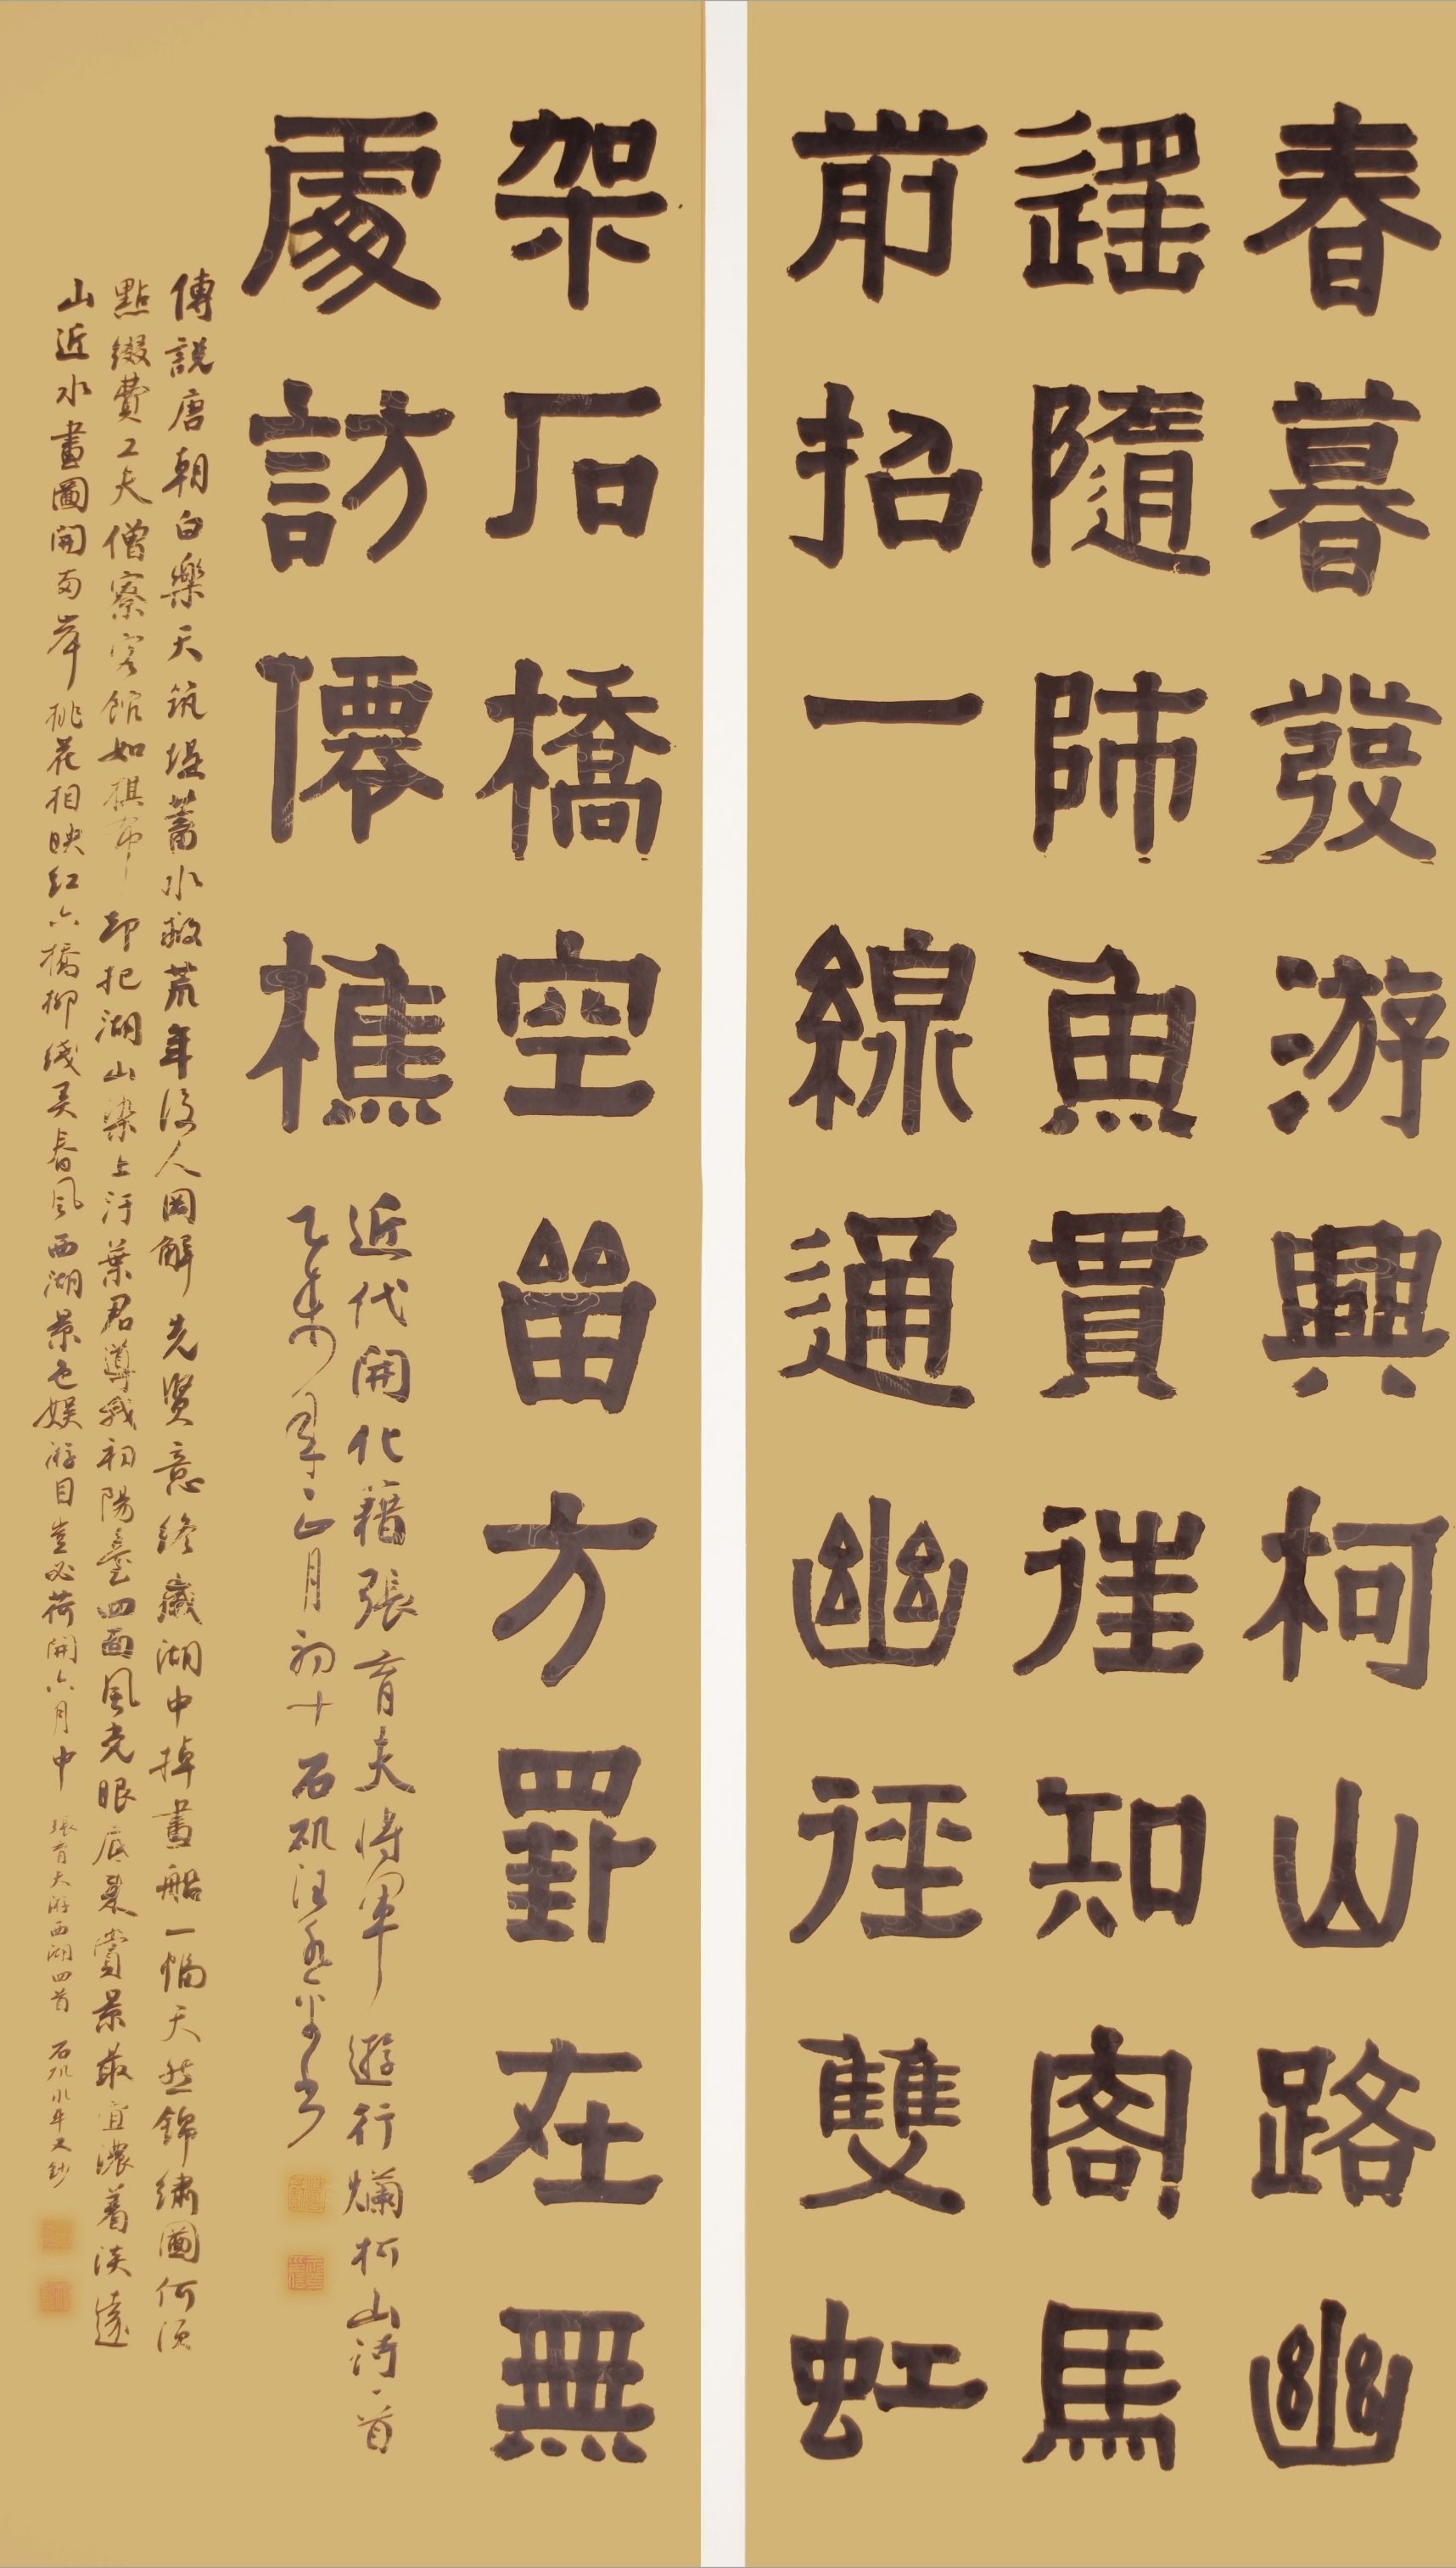 春暮發游興柯山路幽
謡隨師魚貫往知閣馬
前招一線通幽徑雙虹
架石橋空留方罫在無
處訪僊樵
近代開化籍張育夫將軍遊行爛柯山詩一首
乙未年正月初十石矶汪
傳説唐朝白樂天筑堤蓄水救荒年後人罔解先賢意終歲湖中掉畫船一幅天然錦繡圖何須
點綴費工夫僧寮客館如棋布却把湖山染上汙葉君導我初陽臺四面風光眼底來賞景最宜濃着淡遠
山近水畫圖開兩岸桃花相映紅六橋柳綫弄春風西湖景色娱游目豈必荷開六月中
張育夫游西湖四首 石矶水牛又鈔